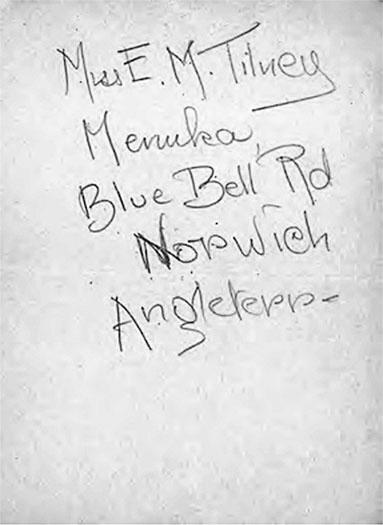 Miss E. M. Tilney
Menuka,
Blue Bell Rd
Norwich
Angleterr-